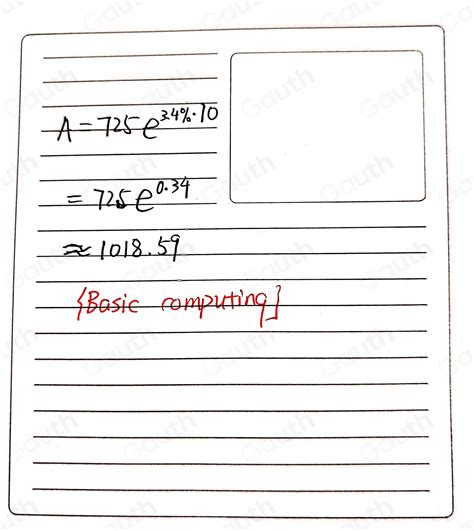 A = 725 e^{3.4%·10}
= 725 e^{0.34}
≈ 1018.59
{Basic computing]
Gauth